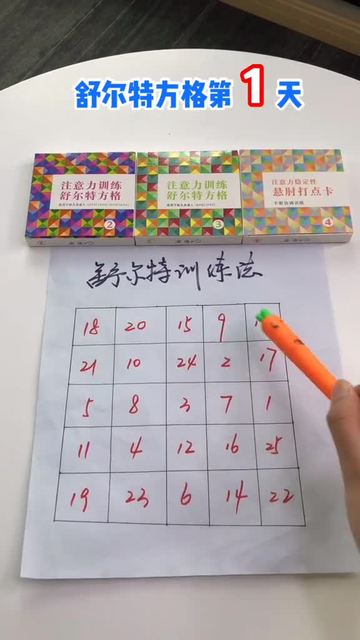 舒尔特方格第1天
注意力训练
舒尔特方格
2
注意力训练
舒尔特方格
3
注意力稳定性
悬肘打点卡
4
舒尔特训练法
18 20 15 9
21 10 24 2 17
5 8 3 7 1
11 4 12 16 25
19 23 6 14 22